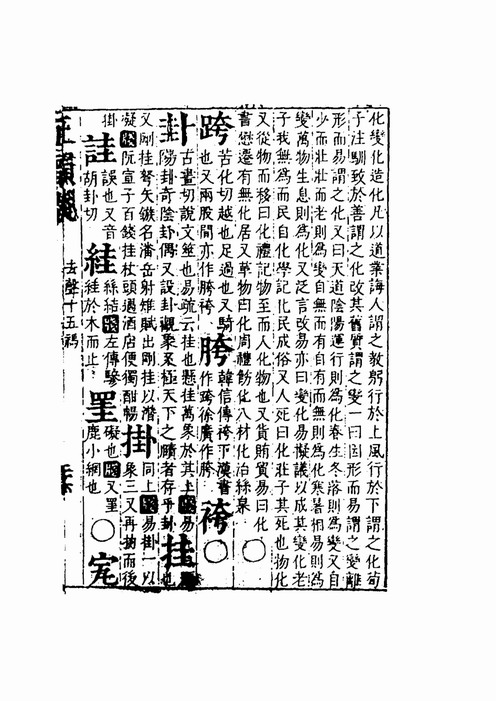 化變化造化凡以道業誨人謂之教躬行於上風行於下謂之化荀
子注馴致於善謂之化改其舊質謂之變一曰因形而易謂之變離
形而易謂之化又曰天道陰陽運行則爲化春生冬落則爲變又自
少而壯壯而老則爲變自無而有自有而無則爲化寒暑相易則爲
變萬物生息則爲化又泛言改易亦曰變化易擬議以成其變化老
子我無爲而民自化學記化民成俗又人死曰化莊子其死也物化
又從物而移曰化禮記物至而人化物也又貨賄貿易曰化
書懋遷有無化居又草物曰化周禮飭化八材化治絲枲
跨苦化切越也足過也又騎也又兩股間亦作胯袴胯韓信傳袴下漢書作跨徐廣作胯袴
卦古畫切說文筮也易疏云卦也懸挂萬象於其上易陽卦奇陰卦偶又設卦觀象又極天下之賾者存乎卦挂
又剐挂弩矢鏃名潘岳射雉賦出剛挂以潛掛同上易掛一以
礙阮宣子百錢挂杖頭過酒店便獨酣暢象三又再扐而後
掛詿誤也又音胡卦切絓絲結左傳驂絓於木而止罣礙也又罣鹿小網也
去聲十五禡